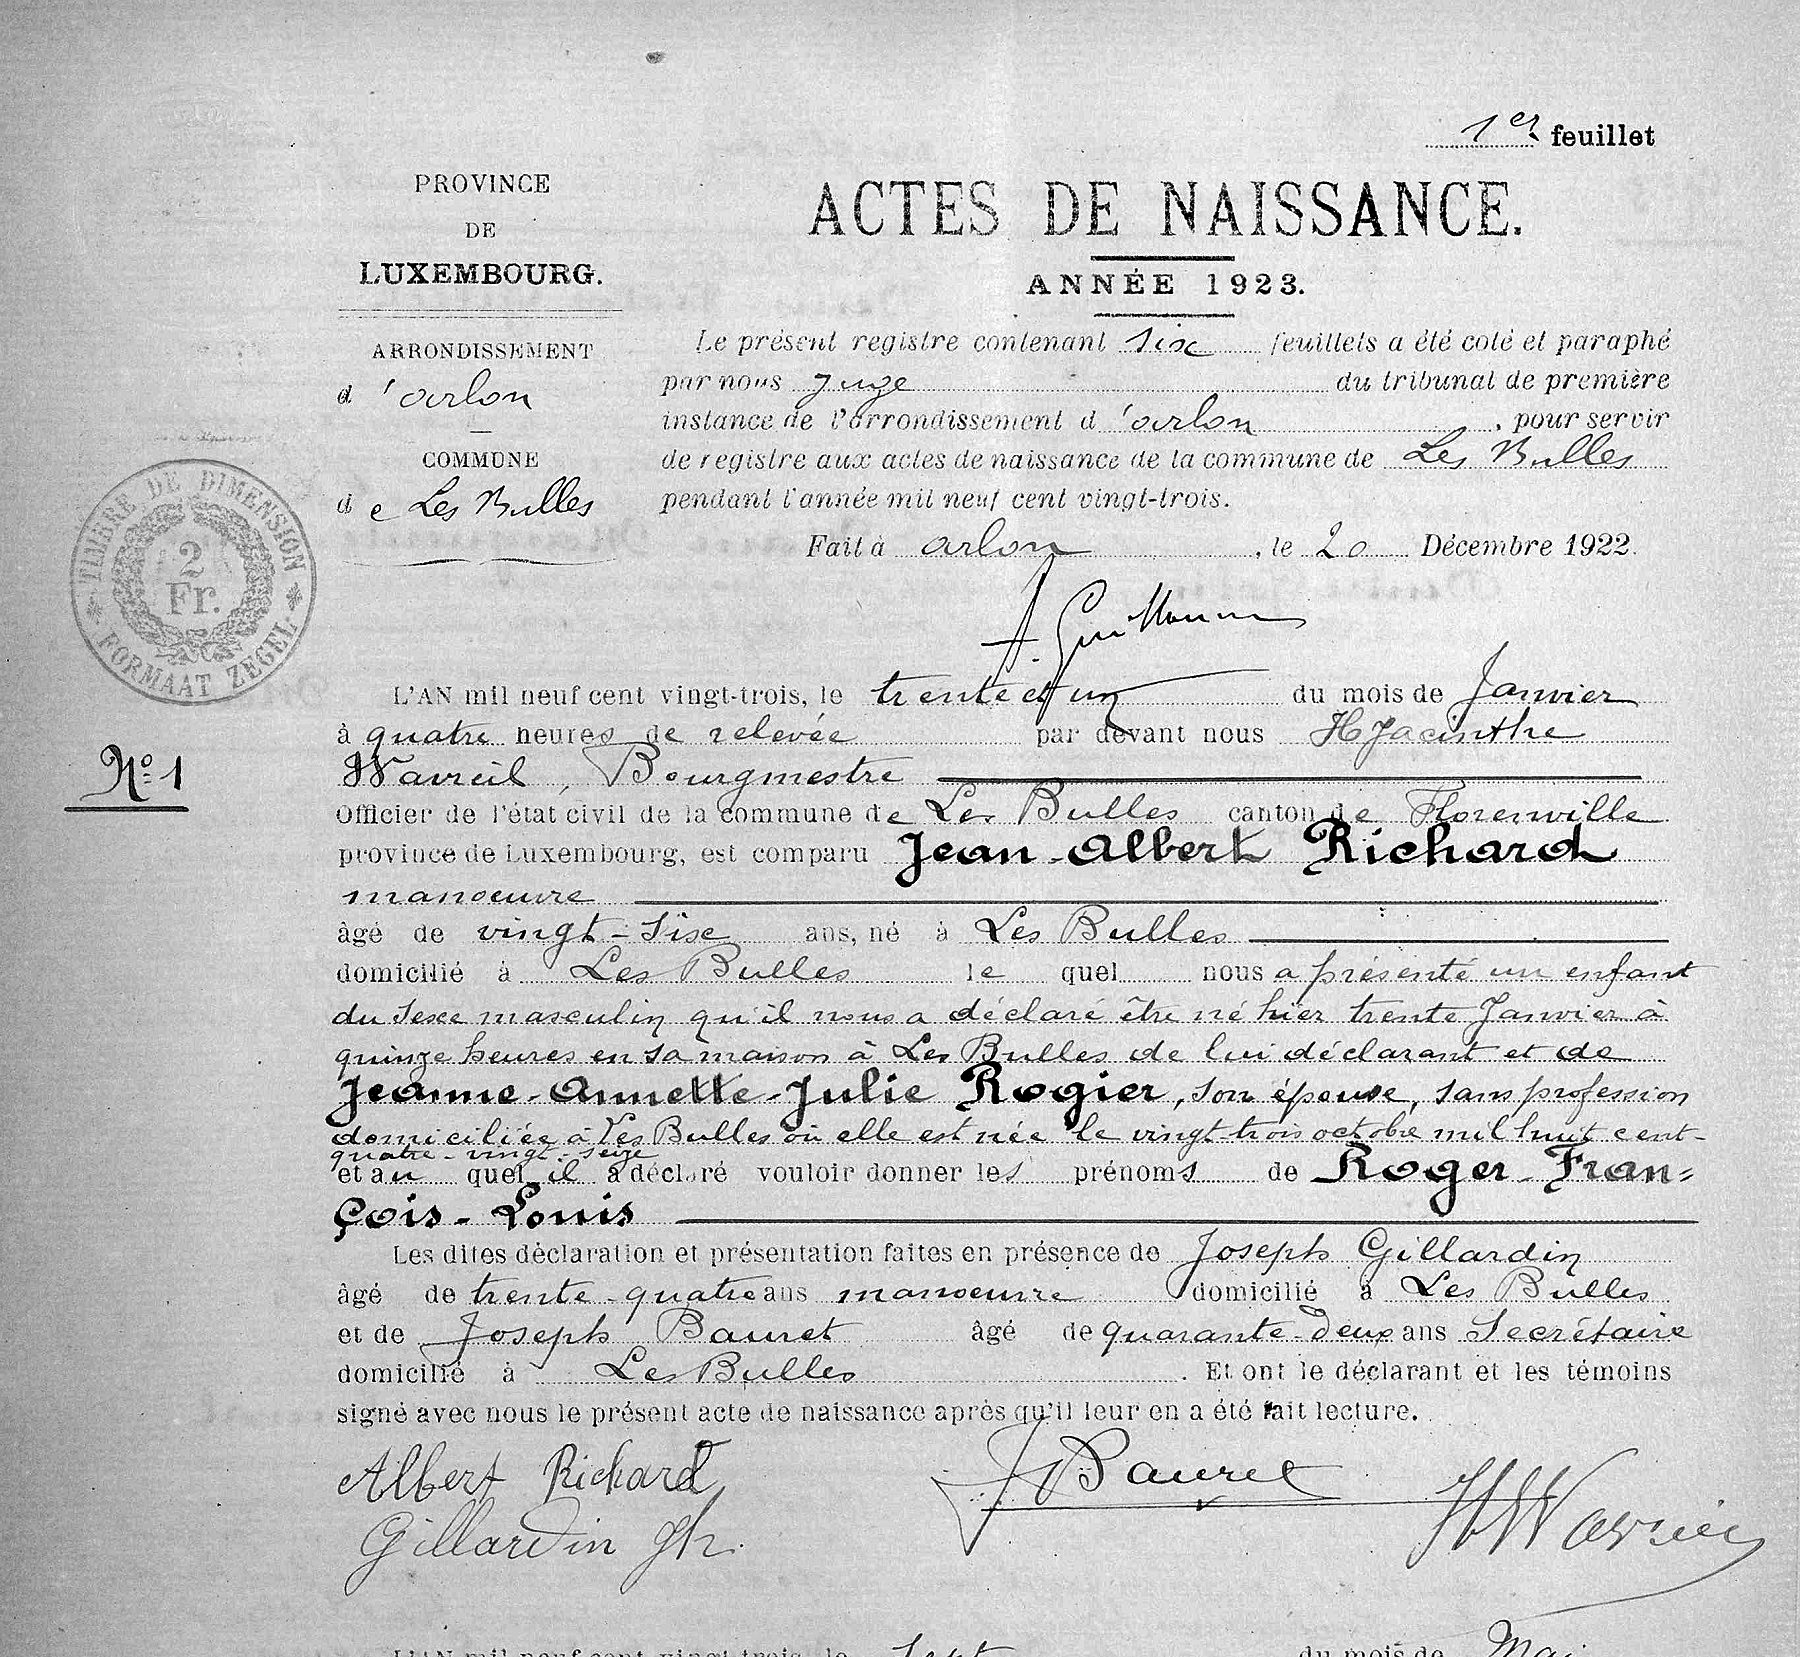 1er feuillet
PROVINCE
DE
LUXEMBOURG.
ARRONDISSEMENT
d'arlon
COMMUNE
de Les Bulles
TIMBRE DE DIMENSION
2
Fr.
FORMAAT ZEGEL
ACTES DE NAISSANCE.
ANNÉE 1923.
Le présent registre contenant six feuillets a été coté et paraphé
par nous juge du tribunal de première
instance de l'arrondissement d'arlon, pour servir
de registre aux actes de naissance de la commune de Les Bulles
pendant l'année mil neuf cent vingt-trois.
Fait à arlon, le 20 Décembre 1922.
No 1
L'AN mil neuf cent vingt-trois, le trente et un du mois de Janvier
à quatre heures de relevée par devant nous HJacinthe
Wavreil, Bourgmestre
Officier de l'état civil de la commune de Les Bulles canton de Florenville
province de Luxembourg, est comparu Jean-Albert Richard
manoeuvre
âgé de vingt-six ans, né à Les Bulles
domicilié à Les Bulles le quel nous a présenté un enfant
du sexe masculin qu'il nous a déclaré être né hier trente Janvier à
quinze heures en sa maison à Les Bulles de lui déclarant et de
Jeanne-Annette-Julie Rogier, son épouse, sans profession
domiciliée à Les Bulles où elle est née le vingt-trois octobre mil huit cent-
quatre-vingt-seize
et au quel il a déclaré vouloir donner les prénoms de Roger-Fran=
çois-Louis
Les dites déclaration et présentation faites en présence de Joseph Gillardin
âgé de trente-quatre ans manoeuvre domicilié à Les Bulles
et de Joseph Bauret âgé de quarante-deux ans Secrétaire
domicilié à Les Bulles. Et ont le déclarant et les témoins
signé avec nous le présent acte de naissance après qu'il leur en a été fait lecture.
Albert Richard
J Bauret
Gillardin Jh.
L'AN mil neuf cent vingt-trois, le sept du mois de Mai